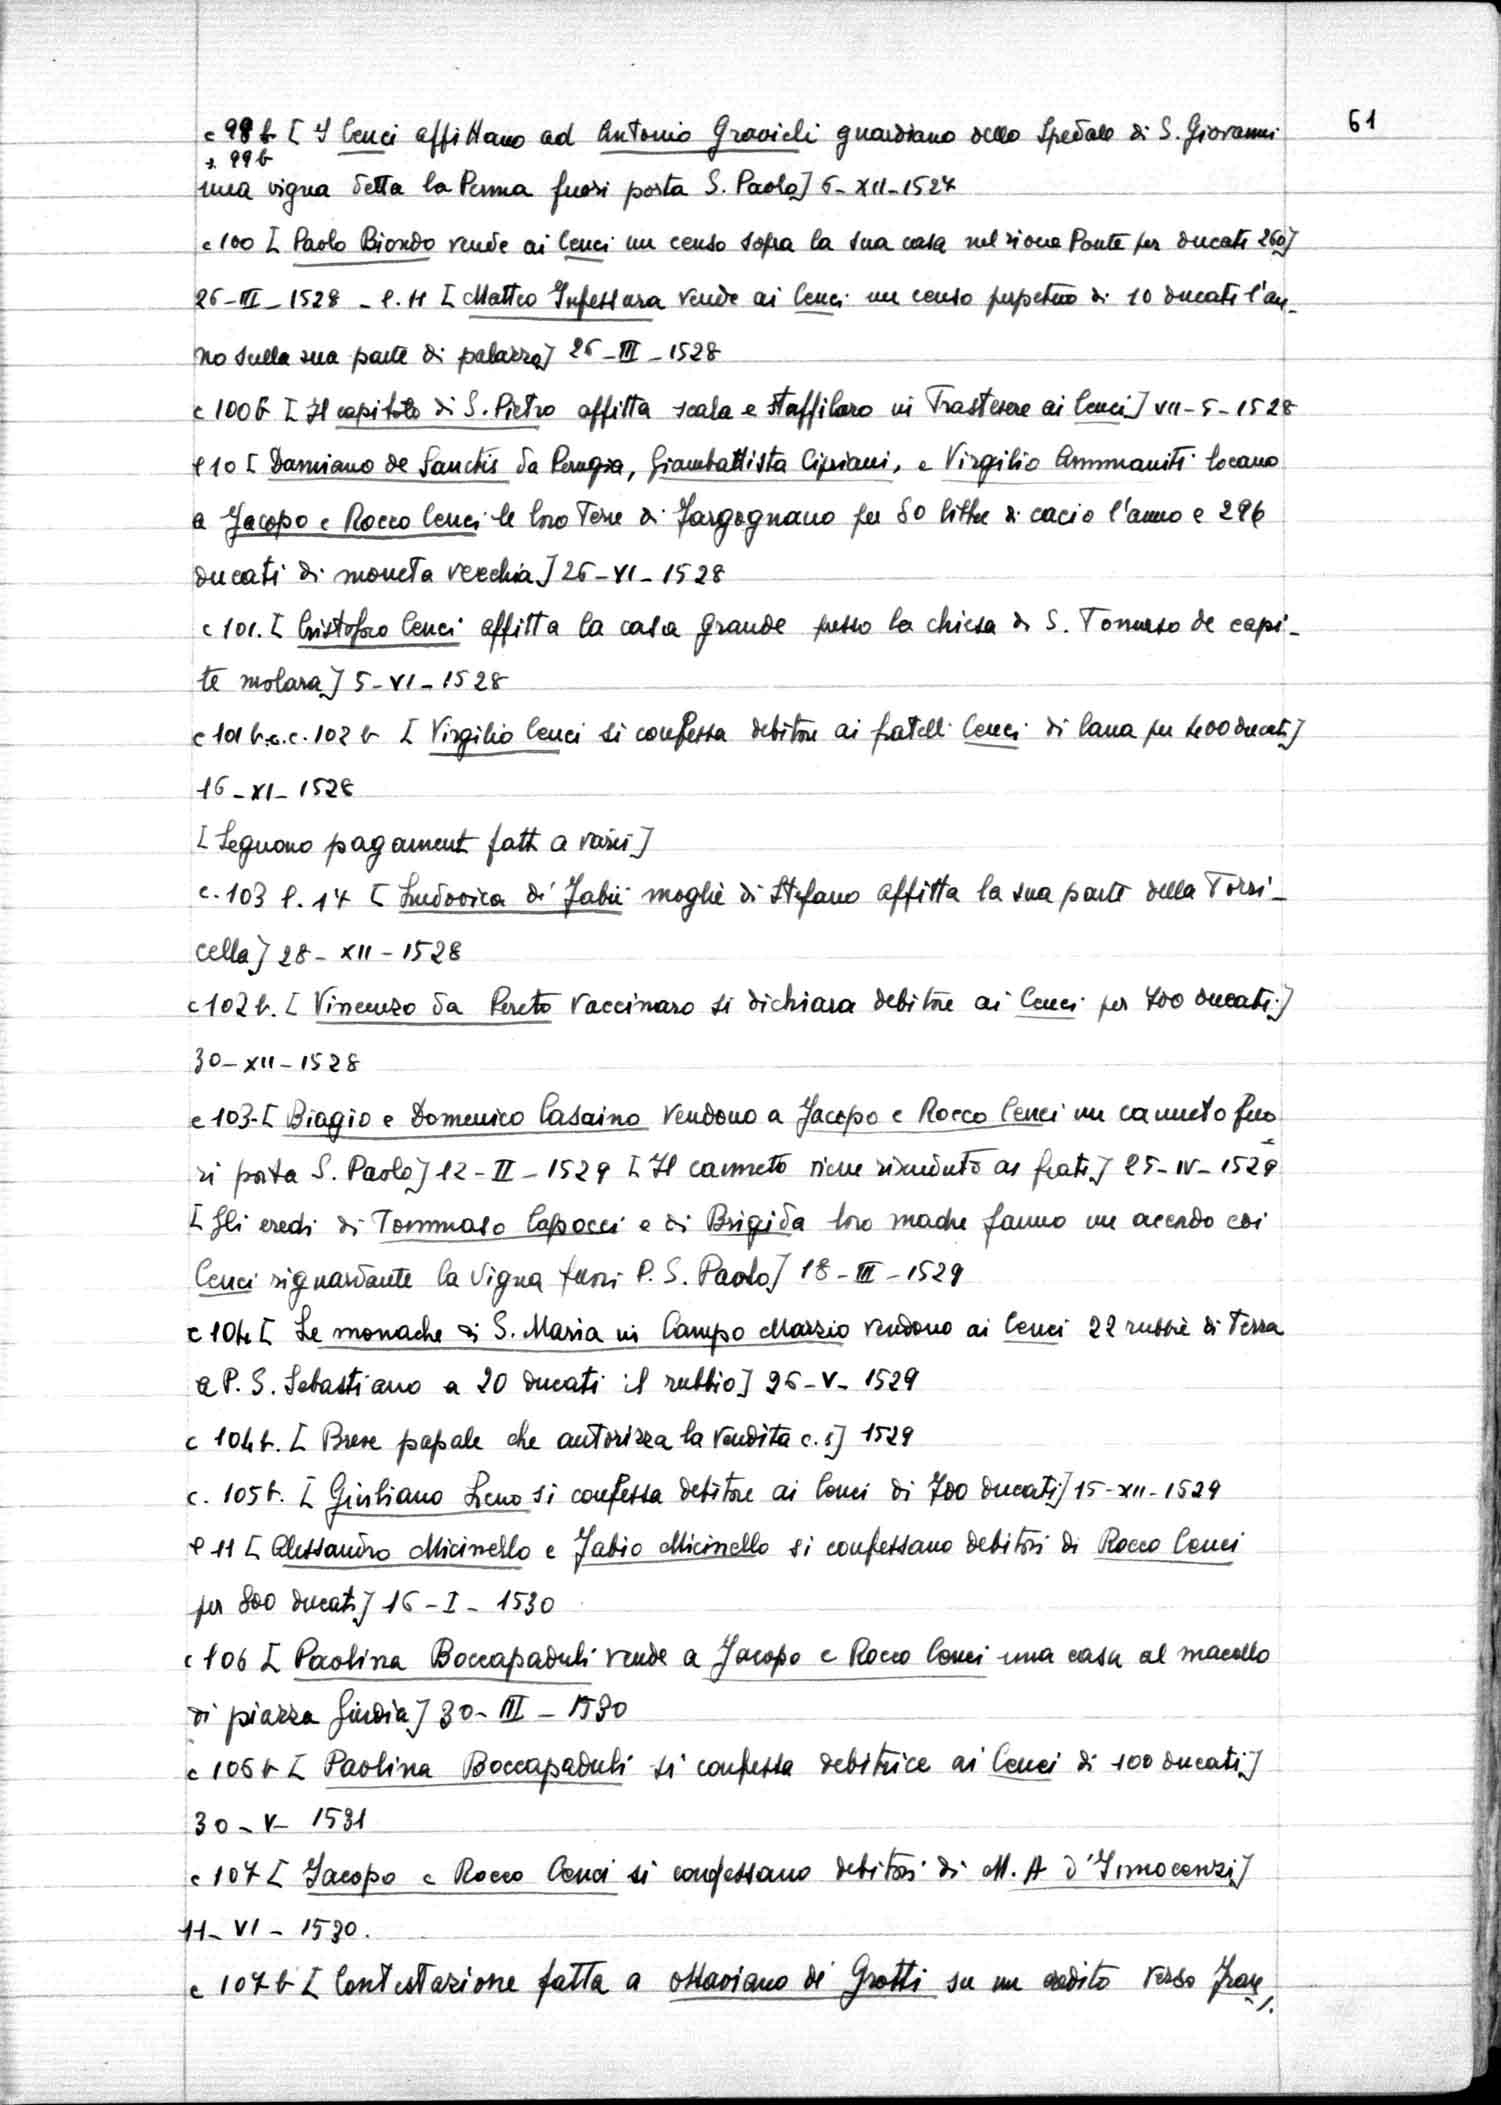 61
c 98 b [ I Cenci affittano ad Antonio Gravicli guardiano dello Spedale di S. Giovanni
99b
una vigna detta la Penna fuori porta S. Paolo] 6-XII-1527
c 100 [ Paolo Biondo vende ai Cenci un censo sopra la sua casa nel rione Ponte per ducati 260]
26-III-1528 - l. 11 [ Matteo Infessura vende ai Cenci un censo perpetuo di 10 ducati l'an-
no sulla sua parte di palazzo] 26-III-1528
c 100b [ Il capitolo di S. Pietro affitta scala e staffilaro in Trastevere ai Cenci] VII-5-1528
l 10 [ Damiano de Sanctis da Perugia, Giambattista Cipriani, e Virgilio Ammaniti locano
a Jacopo e Rocco Cenci le loro Terre di Fargognano per 80 libbre di cacio l'anno e 296
ducati di moneta vecchia] 26-VI-1528
c 101. [ Cristoforo Cenci affitta la casa grande presso la chiesa di S. Tommaso de capi-
te molara] 5-VI-1528
c 101 b. e. c. 102 b [ Virgilio Cenci si confessa debitore ai fratelli Cenci di lana per 400 ducati]
16-XI-1528
[ Seguono pagamenti fatti a varii]
c. 103 l. 17 [ Ludovica di Fabii moglie di Stefano affitta la sua parte della Torri-
cella] 28-XII-1528
c 102 b. [ Vincenzo da Pereto vaccinaro si dichiara debitore ai Cenci per 700 ducati]
30-XII-1528
c 103-[ Biagio e Domenico Casaino vendono a Jacopo e Rocco Cenci un canneto fuo
ri porta S. Paolo] 12-II-1529 [ Il canneto viene rivenduto ai frati] 25-IV-1529
[ Gli eredi di Tommaso Capocci e di Brigida loro madre fanno un accordo coi
Cenci riguardante la vigna fuori P. S. Paolo] 18-III-1529
c 104 [ Le monache di S. Maria in Campo Marzio vendono ai Cenci 22 rubbie di Terra
a P. S. Sebastiano a 20 ducati il rubbio] 26-V-1529
c 104 b. [ Breve papale che autorizza la vendita c. s] 1529
c. 105 b. [ Giuliano Leno si confessa debitore ai Cenci di 700 ducati] 15-XII-1529
l 11 [ Alessandro Micinello e Fabio Micinello si confessano debitori di Rocco Cenci
per 800 ducati] 16-I-1530
c 106 [ Paolina Boccapaduli vende a Jacopo e Rocco Cenci una casa al macello
di piazza Giudia] 30-III-1530
c 106 b [ Paolina Boccapaduli si confessa debitrice ai Cenci di 100 ducati]
30-V-1531
c 107 [ Jacopo e Rocco Cenci si confessano debitori di M. A d'Innocenzi]
11-VI-1530.
c 107 b [ Contestazione fatta a Ottaviano de' Grotti su un credito verso Fran